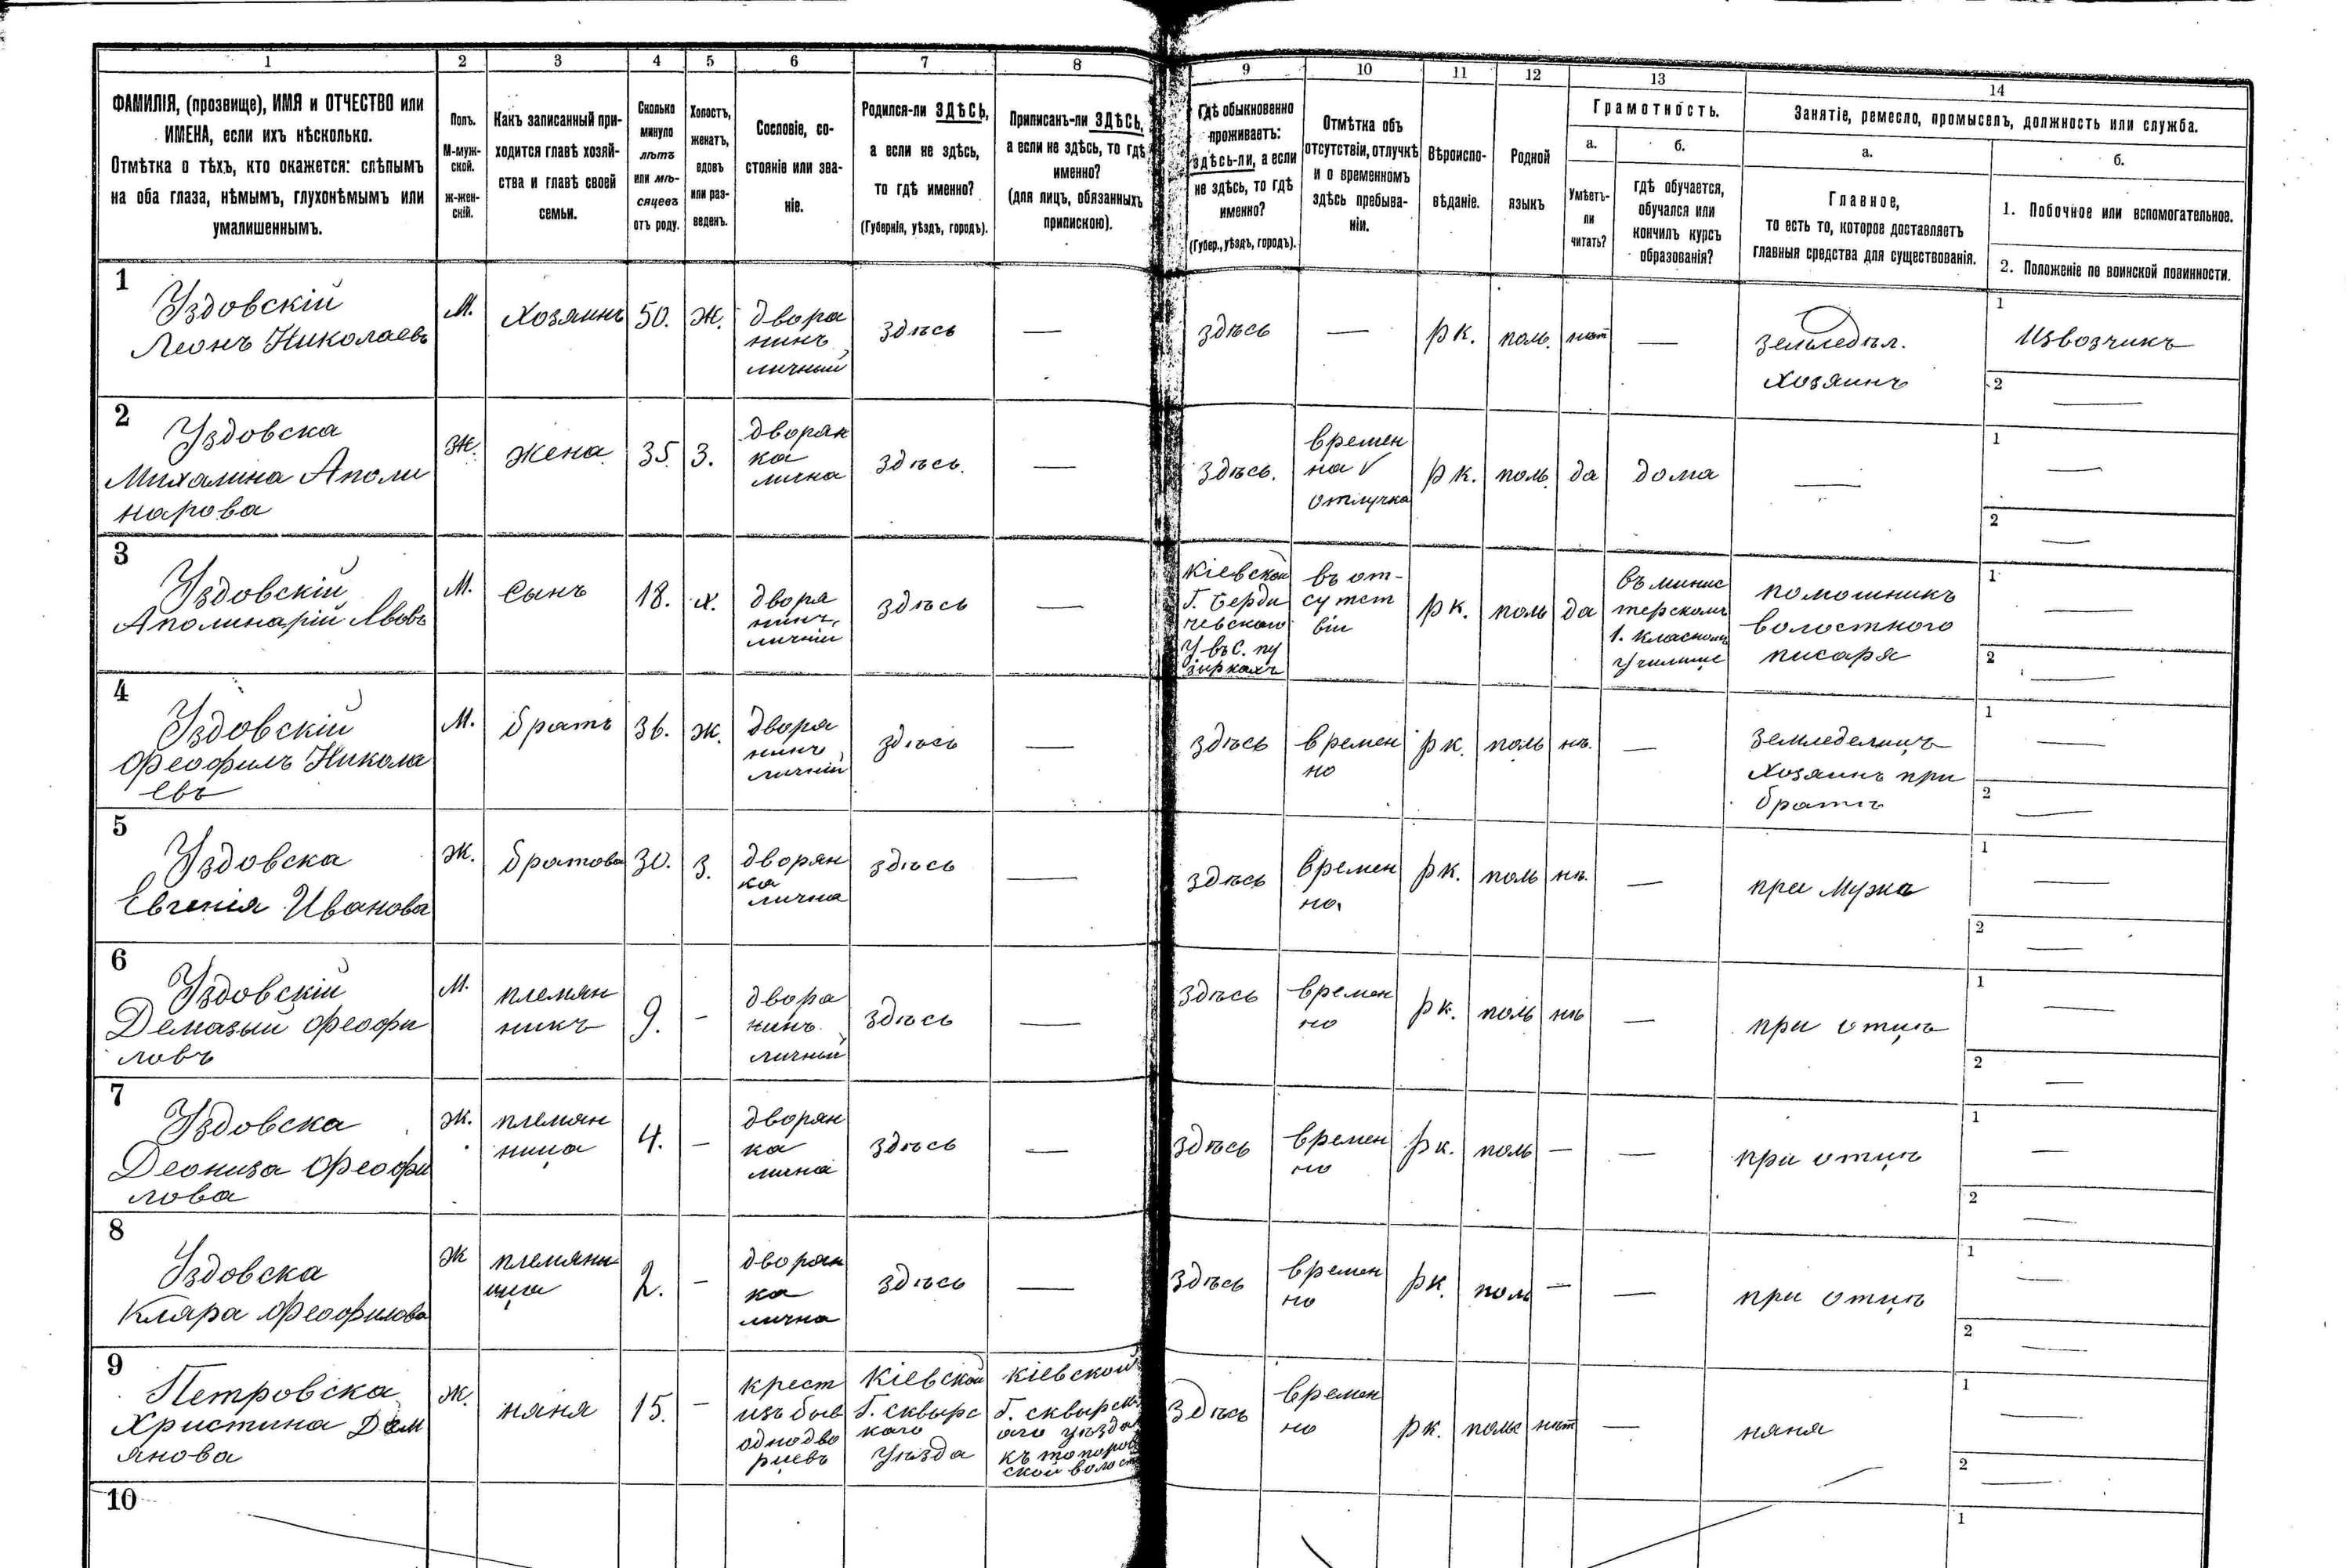 1 2 3 4 5 6 7 8 9 10 11 12 13 14
ФАМИЛІЯ, (прозвище), ИМЯ и ОТЧЕСТВО или
ИМЕНА, если ихъ нѣсколько.
Отмѣтка о тѣхъ, кто окажется: слѣпымъ
на оба глаза, нѣмымъ, глухонѣмымъ или
умалишеннымъ.
Полъ.
М-муж-
ской.
ж-жен-
скій.
Какъ записанный при-
ходится главѣ хозяй-
ства и главѣ своей
семьи.
Сколько
минуло
лѣтъ
или мѣ-
сяцевъ
отъ роду.
Холостъ,
женатъ,
вдовъ
или раз-
веденъ.
Сословіе, со-
стояніе или зва-
ніе.
Родился-ли ЗДѢСЬ,
а если не здѣсь,
то гдѣ именно?
(Губернія, уѣздъ, городъ).
Приписанъ-ли ЗДѢСЬ,
а если не здѣсь, то гдѣ
именно?
(для лицъ, обязанныхъ
припискою).
Гдѣ обыкновенно
проживаетъ:
здѣсь-ли, а если
не здѣсь, то гдѣ
именно?
(Губер., уѣздъ, городъ).
Отмѣтка объ
отсутствіи, отлучкѣ
и о временномъ
здѣсь пребыва-
ніи.
Вѣроиспо-
вѣданіе.
Родной
языкъ
Грамотность.
а.
Умѣетъ-
ли
читать?
б.
гдѣ обучается,
обучался или
кончилъ курсъ
образованія?
Занятіе, ремесло, промыселъ, должность или служба.
а.
Главное,
то есть то, которое доставляетъ
главныя средства для существованія.
б.
1. Побочное или вспомогательное.
2. Положеніе по воинской повинности.
1
Уздовскій
Леонъ Николаевъ
М.
Хозяинъ
50.
Ж.
двора
нинъ
личный
здѣсь
—
здѣсь
—
рк.
поль.
нѣт
—
земледѣл.
Хозяинъ
1
Извозчикъ
2
—
2
Уздовска
Михалина Аполи
нарова
Ж.
Жена
35.
З.
дворян
ка
лична
здѣсь.
—
здѣсь.
времен
на
отлучка
рк.
поль.
да
дома
—
1
—
2
—
3
Уздовскій
Аполинарій Львовъ
М.
Сынъ
18.
х.
дворя
нинъ
личній
здѣсь
—
Кіевской
Г. Берди
чевского
У въ С. пу
зыркахъ
въ от-
сутст
віи
рк.
поль
да
въ минис
терскомъ
1. класномъ
училище
помошникъ
волостного
писаря
1
—
2
—
4
Уздовскій
Феофилъ Никола
евъ
М.
братъ
36.
Ж.
дворя
нинъ
личній
здѣсь
—
здѣсь
времен
но
рк.
поль
нѣ.
—
земледелицъ
Хозяинъ при
братѣ
1
—
2
—
5
Уздовска
Евгенія Иванова
Ж.
братова
30.
З.
дворян
ка
лична
здѣсь
—
здѣсь
времен
но.
рк.
поль
нѣ.
—
при Мужа
1
—
2
—
6
Уздовскій
Демазый Феофи
ловъ
М.
племян
никъ
9.
-
двора
нинъ
личный
здѣсь
—
здѣсь
времен
но
рк.
поль
нѣ
—
при отцѣ
1
—
2
—
7
Уздовска
Деониза Феофи
лова
Ж.
племян
ница
4.
—
дворян
ка
лична
здѣсь
—
здѣсь
времен
но
рк.
поль
—
—
при отцѣ
1
—
2
—
8
Уздовска
Кляра Феофилова
Ж
племянн
ица
2.
—
дворян
ка
лична
здѣсь
—
здѣсь
времен
но
рк.
поль
—
—
при отцѣ
1
—
2
—
9
Петровска
Христина Дем
янова
Ж.
няня
15.
-
крест
изъ быв
однодво
рцевъ
Кіевской
Г. сквырс
кого
Уѣзда
Кіевской
Г. сквырск
ого уѣзда
къ топоров
ской волост
здѣсь
времен
но
рк.
поль
нѣт
—
няня
1
—
2
—
10
1